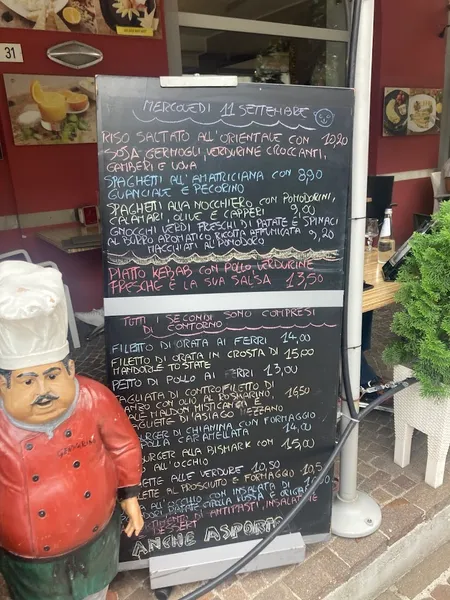 31
MERCOLEDI 11 SETTEMBRE
RISO SALTATO ALL'ORIENTALE CON 10,20
SOJA GERMOGLI, VERDURINE CROCCANTI,
GAMBERI E UOVA
SPAGHETTI ALL'AMATRICIANA CON 8,90
GUANCIALE E PECORINO
SPAGHETTI ALLA NOCCHIERO CON POMODORINI,
CALAMARI, OLIVE E CAPPERI 9,00
GNOCCHI VERDI FRESCHI DI PATATE E SPINACI
AL BURRO AROMATICO, RICOTTA AFFUMICATA 9,20
MASCHIATI AL POMODORO
PIATTO KEBAB CON POLLO, VERDURINE
FRESCHE E LA SUA SALSA 13,50
TUTTI I SECONDI SONO COMPRESI
DI CONTORNO
FILETTO DI ORATA AI FERRI 14,00
FILETTO DI ORATA IN CROSTA DI 15,00
MANDORLE TOSTATE
PETTO DI POLLO AI FERRI 13,00
TAGLIATA DI CONTROFILETTO DI
MANZO CON OLIO AL ROSMARINO, 16,50
SALE MALDON MISTICANZA E
SCAGLIE D'ASIAGO MEZZANO
BURGER DI CHIANINA CON FORMAGGIO
CIPOLLA CARAMELLATA 14,00
BURGER ALLA BISMARK CON 15,00
ALL'OCCHIO
ALLE VERDURE 10,50
AL PROSCIUTTO E FORMAGGIO 10,5
ALL'OCCHIO CON INSALATA DI
PATATE CIPOLLA ROSSA E
DI ANTIPASTI, INSALATONE
DESSERT
ANCHE ASPORTO